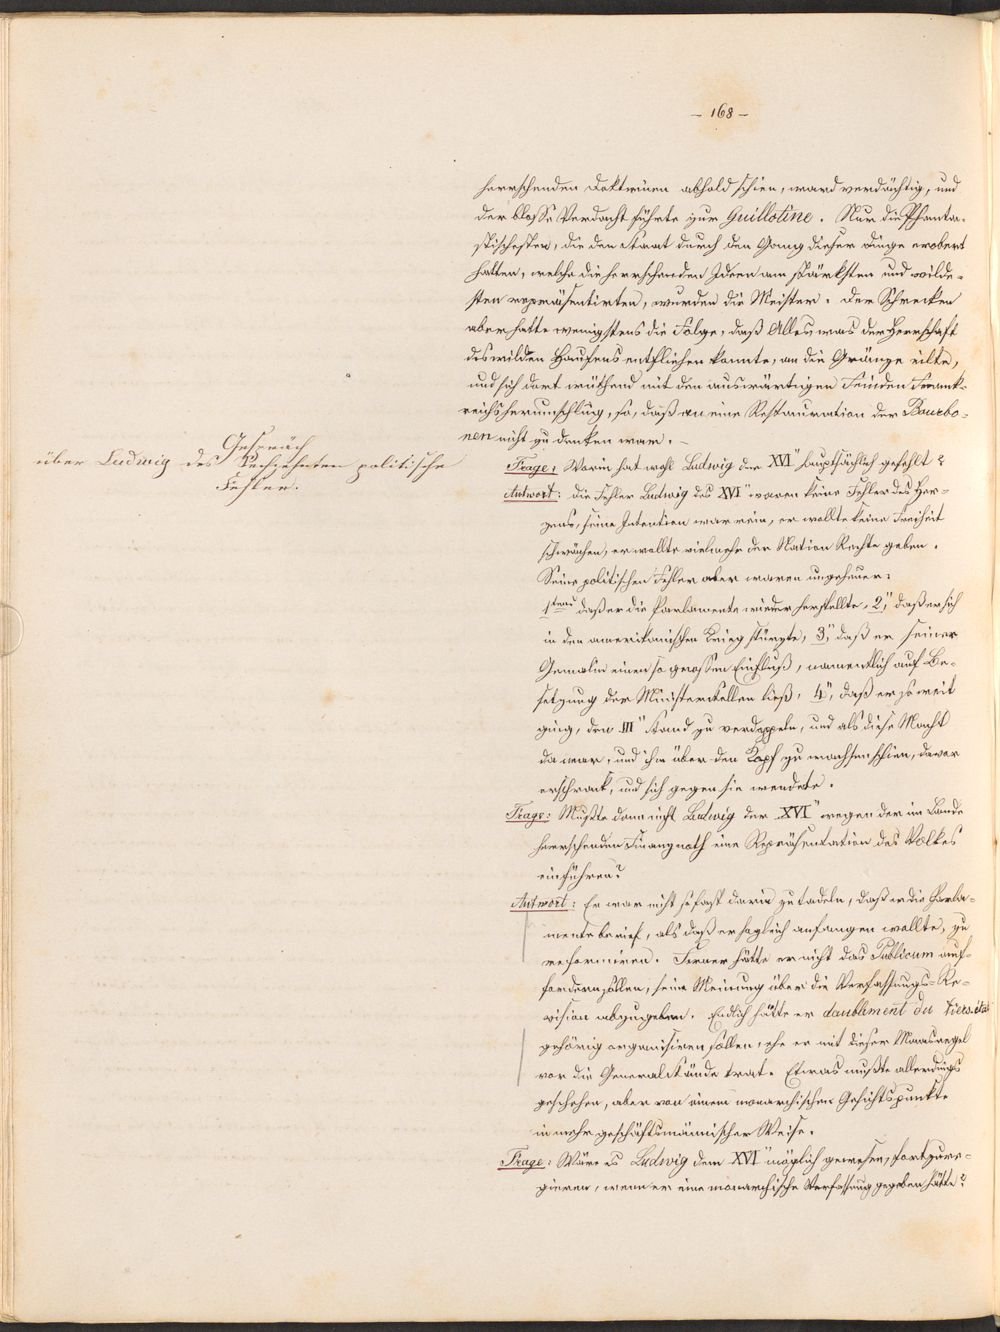 – 168 –
herrschenden Doktrinen abhold schien, ward verdächtig, und
der blosse Verdacht führte zur Guillotine. Nur die Phanta-
stischesten, die den Staat durch den Gang dieser Dinge erobert
hatten, welche die herrschenden Ideen am stärksten und wilde-
sten repräsentirten, wurden die Meister. Der Schrecken
aber hatte wenigstens die Folge, daß Alles, was der Herrschaft
des wilden Haufens entfliehen konnte, an die Gränze eilte,
und sich dort wüthend mit den auswärtigen Feinden Frank-
reichs herumschlug, so, daß an eine Restauration der Bourbo-
nen nicht zu denken war. –
Gespräch
über Ludwig des Sechzehnten politische
Fehler.
Frage: Worin hat wohl Ludwig der XVI" hauptsächlich gefehlt?
Antwort: Die Fehler Ludwig des XVI" waren keine Fehler des Her-
zens, seine Intention war rein, er wollte keine Freiheit
schwächen, er wollte vielmehr der Nation Rechte geben.
Seine politischen Fehler aber waren ungeheuer:
1tens daß er die Parlamente wieder herstellte, 2," daß er sich
in den amerikanischen Krieg stürzte, 3," daß er seiner
Gemalin einen so grossen Einfluß, namentlich auf Be-
setzung der Ministerstellen ließ, 4," daß er so weit
ging, den III" Stand zu verdoppeln, und als diese Macht
da war, und ihm über den Kopf zu wachsen schien, davor
erschrack, und sich gegen sie wendete.
Frage: Mußte denn nicht Ludwig der XVI" wegen der im Lande
herrschenden Finanznoth eine Repräsentation des Volkes
einführen?
Antwort: Er war nicht so fast darin zu tadeln, daß er die Parla-
mente berief, als daß er sogleich anfangen wollte, zu
reformiren. Ferner hätte er nicht das Publicum auf-
fordern sollen, seine Meinung über die Verfassungs-Re-
vision abzugeben. Endlich hätte er daublement du tiers-état
gehörig organisiren sollen, ehe er mit dieser Maasregel
vor die Generalstände trat. Etwas mußte allerdings
geschehen, aber von einem monarchischen Gesichtspunkte
in mehr geschäftsmännischer Weise.
Frage: Wäre es Ludwig dem XVI" möglich gewesen, fortzure-
gieren, wenn er eine monarchische Verfassung gegeben hätte?